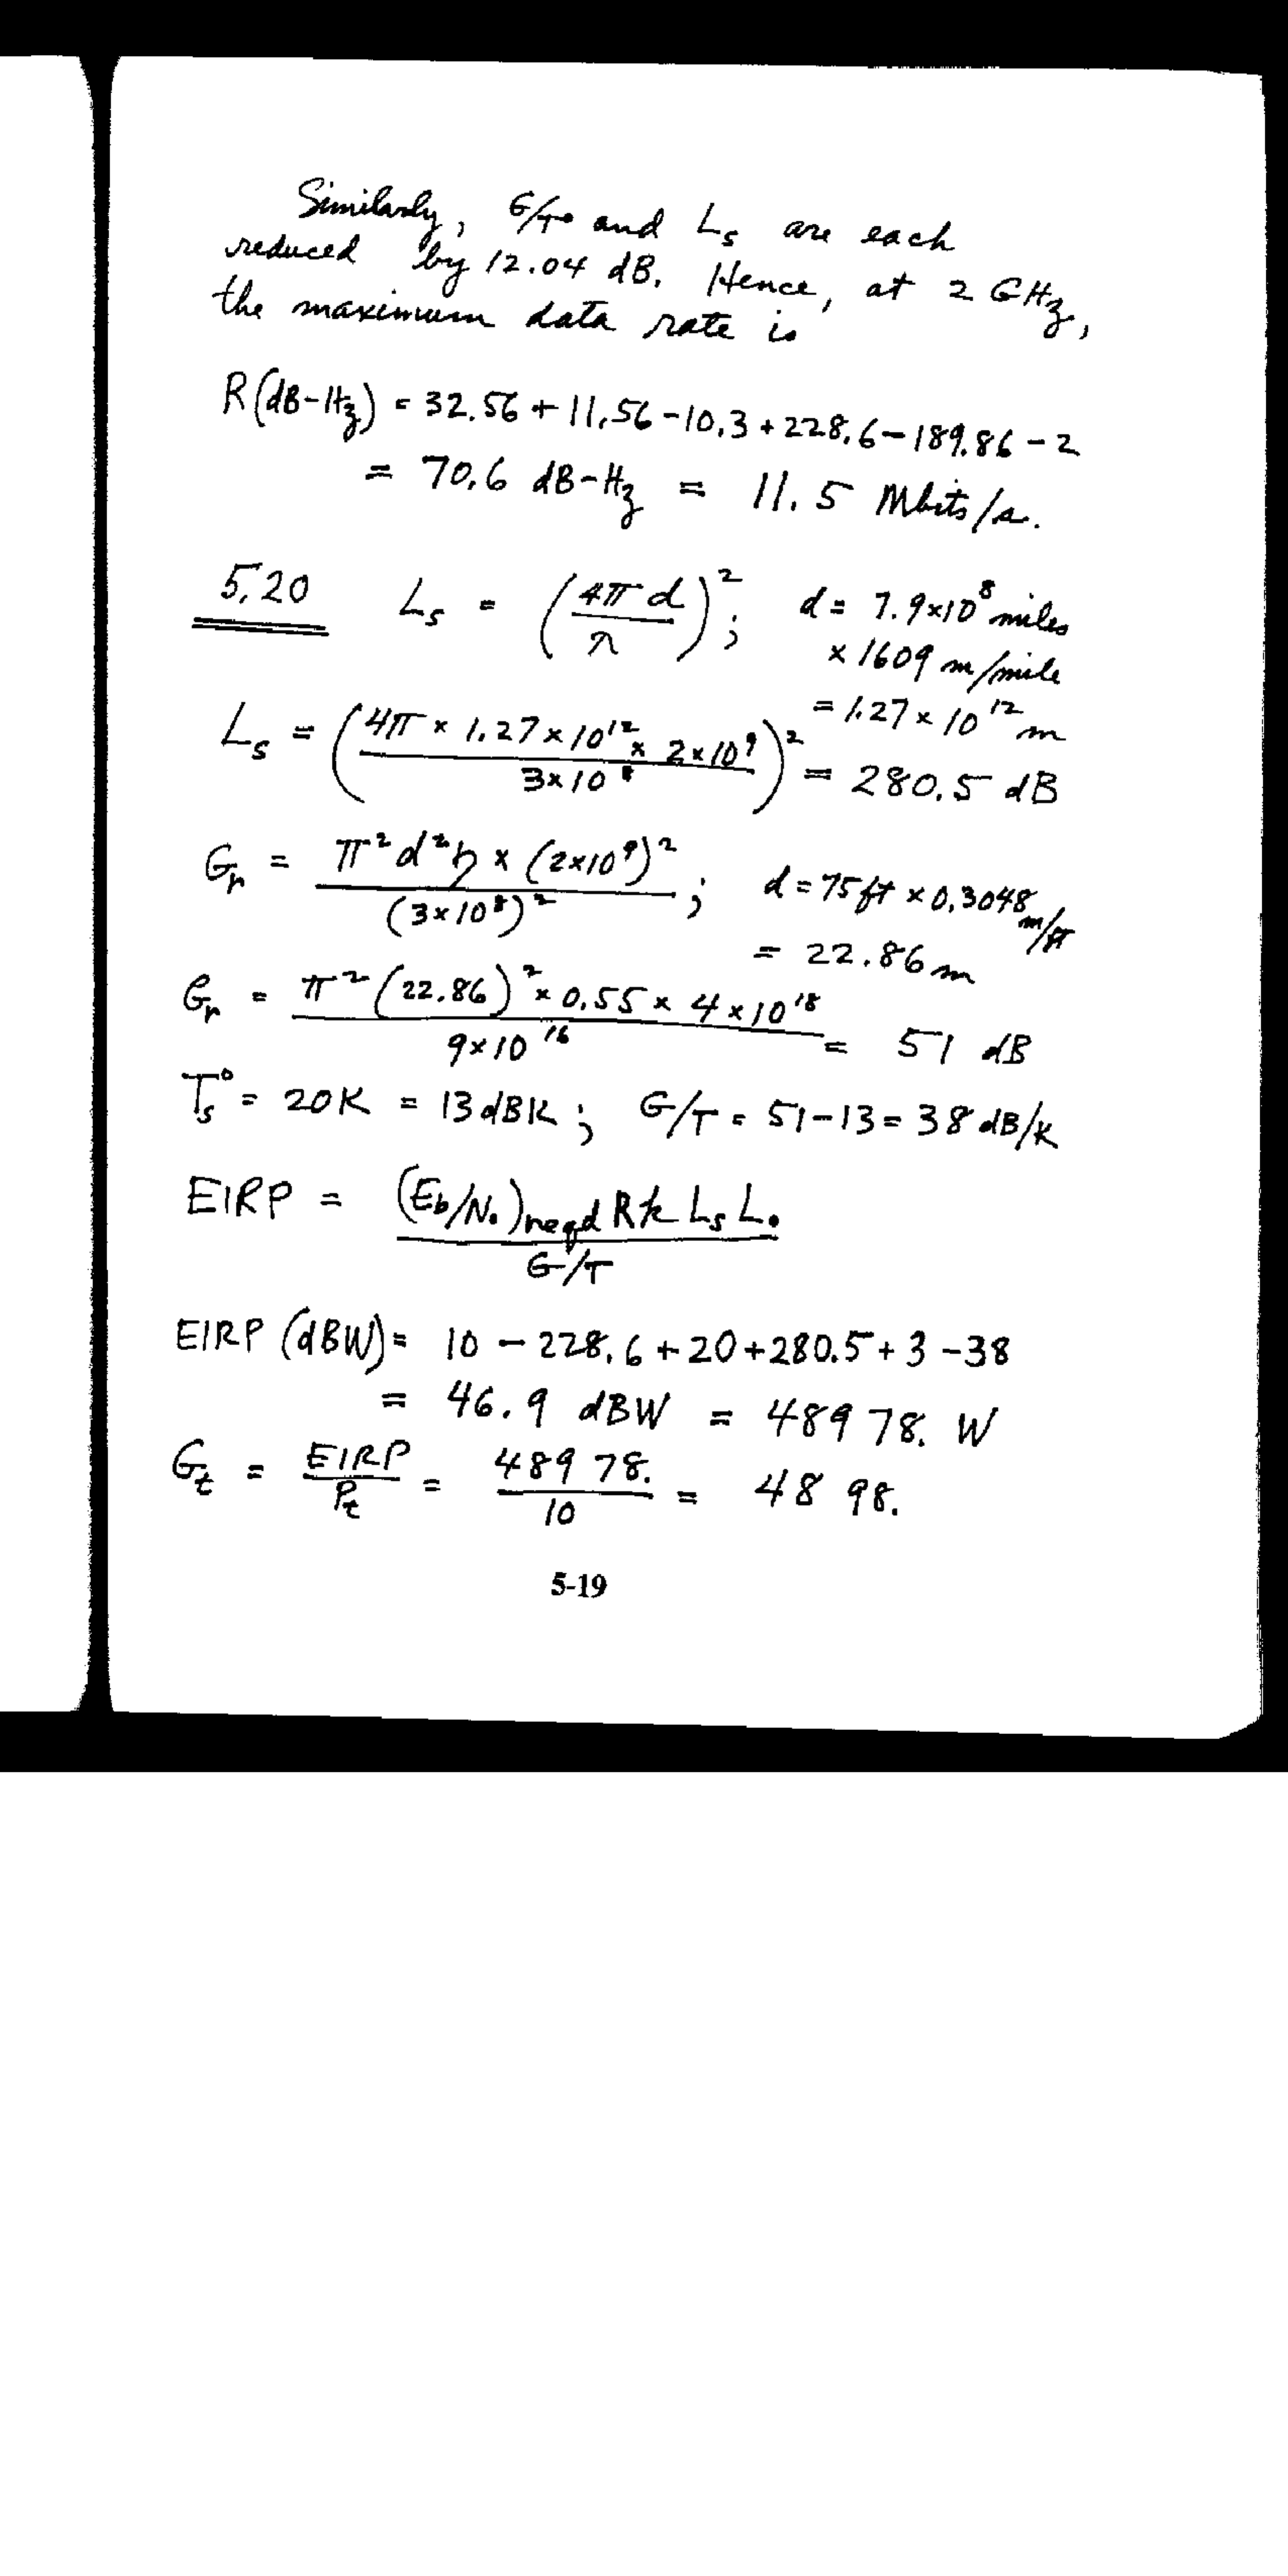 Similarly, G/T° and Ls are each
reduced by 12.04 dB. Hence, at 2 GHz,
the maximum data rate is
R(dB-Hz) = 32.56 + 11.56 - 10.3 + 228.6 - 189.86 - 2
= 70.6 dB-Hz = 11.5 Mbits/s.
5.20 Ls = (4πd/λ)²; d = 7.9×10⁸ miles
× 1609 m/mile
= 1.27 × 10¹² m
Ls = (4π × 1.27×10¹² × 2×10⁹ / 3×10⁸)² = 280.5 dB
Gr = π²d²η × (2×10⁹)² / (3×10⁸)²; d = 75 ft × 0.3048 m/ft
= 22.86 m
Gr = π²(22.86)² × 0.55 × 4×10¹⁸ / 9×10¹⁶ = 51 dB
Ts° = 20K = 13 dBK; G/T = 51-13 = 38 dB/K
EIRP = (Eb/N₀)reqd R k Ls L₀ / G/T
EIRP (dBW) = 10 - 228.6 + 20 + 280.5 + 3 - 38
= 46.9 dBW = 48978. W
Gt = EIRP/Pt = 48978./10 = 4898.
5-19